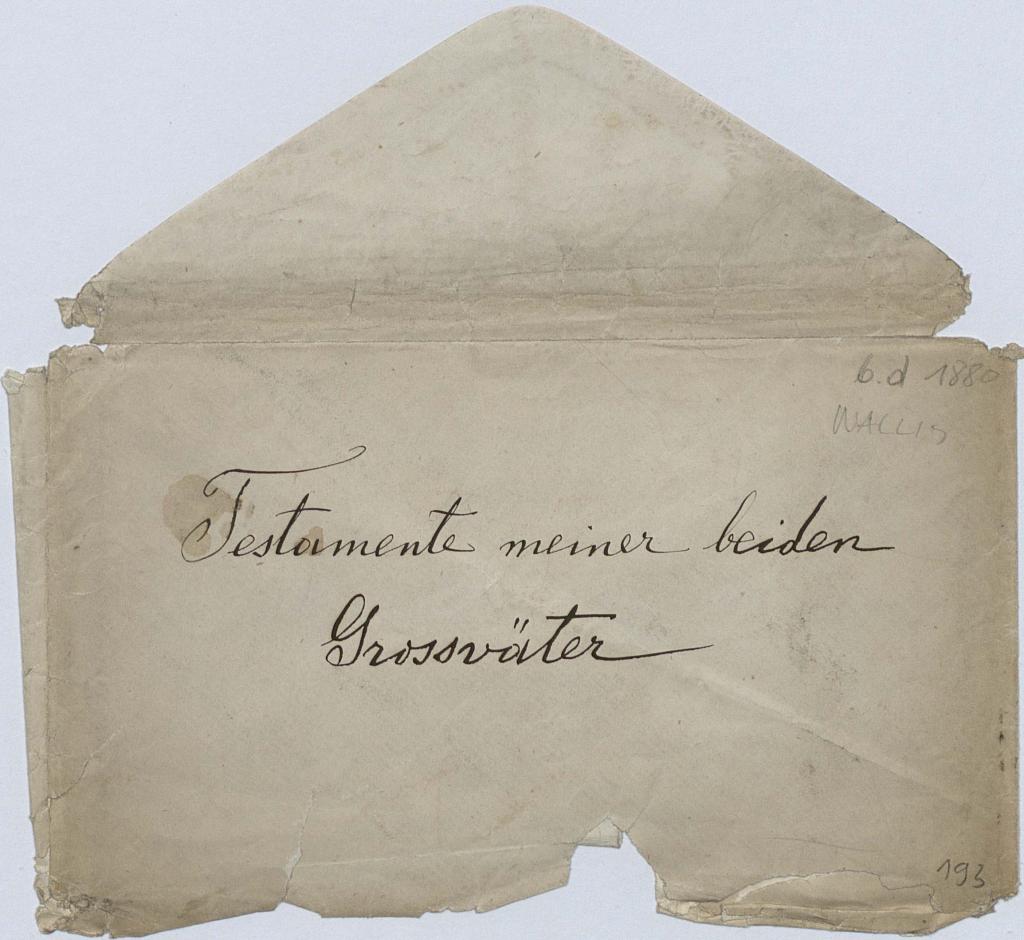 b.d 1880
WALLIS
Testamente meiner beiden
Grossväter
193